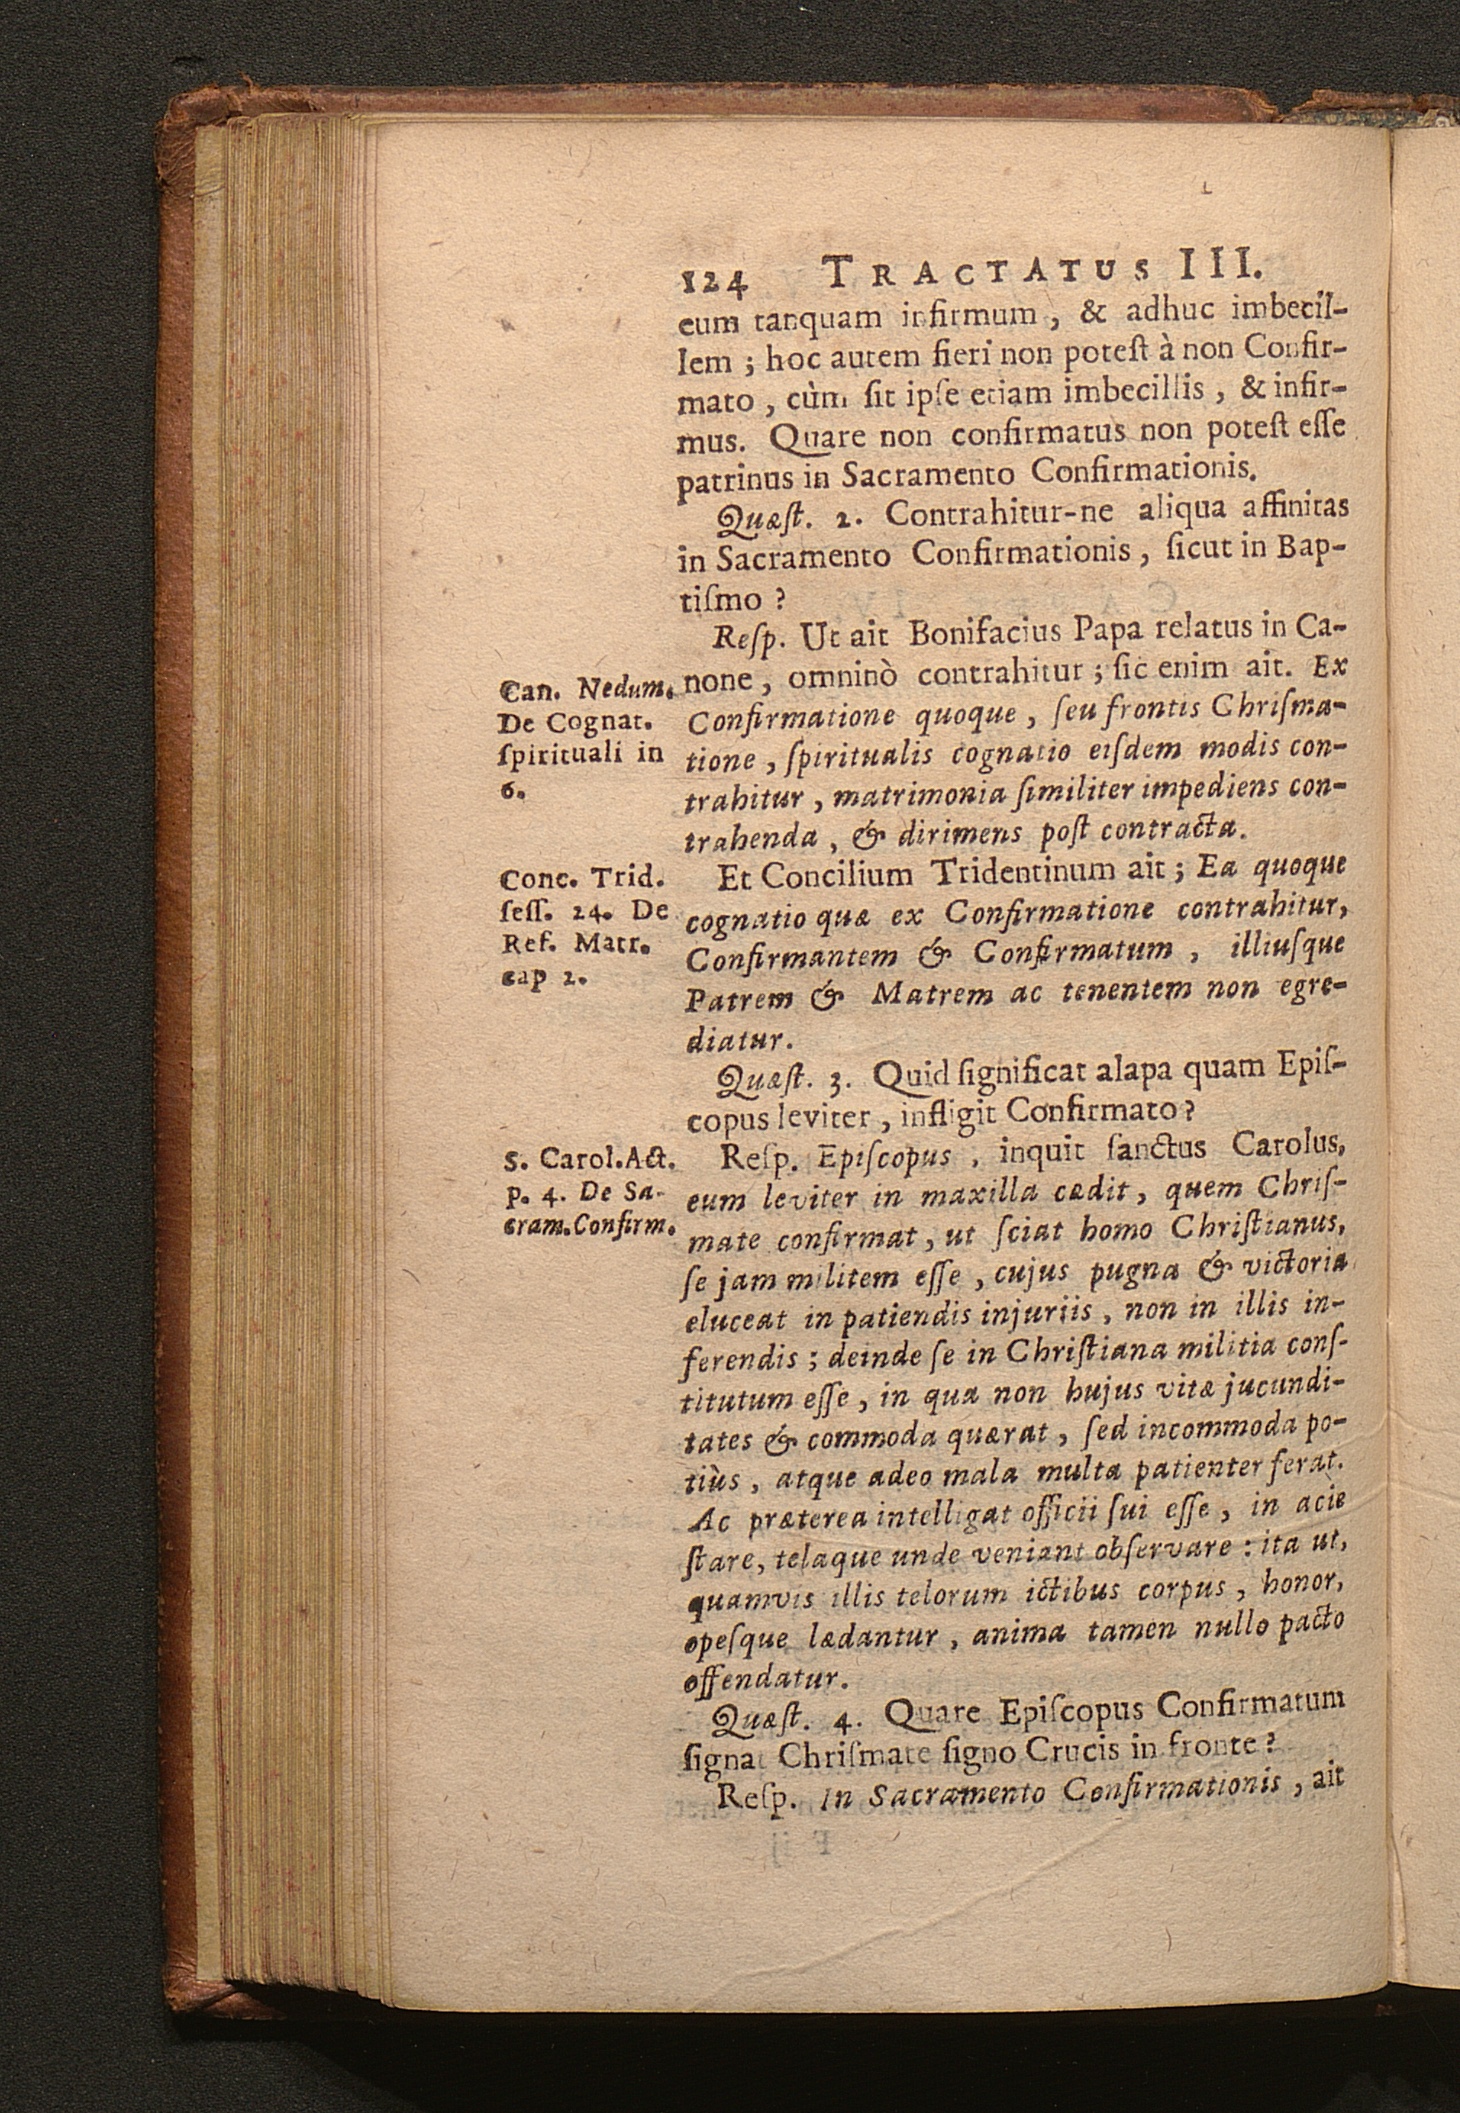 124 TRACTATUS III.
eum tanquam infirmum, & adhuc imbecil-
lem ; hoc autem fieri non poteſt à non Confir-
mato, cùm ſit ipſe etiam imbecillis, & infir-
mus. Quare non confirmatus non poteſt eſſe
patrinus in Sacramento Confirmationis.
Quæſt. 2. Contrahitur-ne aliqua affinitas
in Sacramento Confirmationis, ſicut in Bap-
tiſmo ?
Reſp. Ut ait Bonifacius Papa relatus in Ca-
none, omninò contrahitur ; ſic enim ait. Ex
Confirmatione quoque, ſeu frontis Chriſma-
tione, ſpiritualis cognatio eiſdem modis con-
trahitur, matrimonia ſimiliter impediens con-
trahenda, & dirimens poſt contracta.
Can. Nedum.
De Cognat.
ſpirituali in
6.
Et Concilium Tridentinum ait ; Ea quoque
cognatio quæ ex Confirmatione contrahitur,
Confirmantem & Confirmatum, illiuſque
Patrem & Matrem ac tenentem non egre-
diatur.
Conc. Trid.
ſeſſ. 24. De
Ref. Matr.
cap 2.
Quæſt. 3. Quid ſignificat alapa quam Epiſ-
copus leviter, infligit Confirmato ?
Reſp. Epiſcopus, inquit ſanctus Carolus,
eum leviter in maxilla cædit, quem Chriſ-
mate confirmat, ut ſciat homo Chriſtianus,
ſe jam militem eſſe, cujus pugna & victoria
eluceat in patiendis injuriis, non in illis in-
ferendis ; deinde ſe in Chriſtiana militia conſ-
titutum eſſe, in qua non hujus vitæ jucundi-
tates & commoda quærat, ſed incommoda po-
tiùs, atque adeo mala multa patienter ferat.
Ac præterea intelligat officii ſui eſſe, in acie
ſtare, telaque unde veniant obſervare : ita ut,
quamvis illis telorum ictibus corpus, honor,
opeſque lædantur, anima tamen nullo pacto
offendatur.
S. Carol. Act.
p. 4. De Sa-
cram. Confirm.
Quæſt. 4. Quare Epiſcopus Confirmatum
ſignat Chriſmate ſigno Crucis in fronte ?
Reſp. In Sacramento Confirmationis, ait